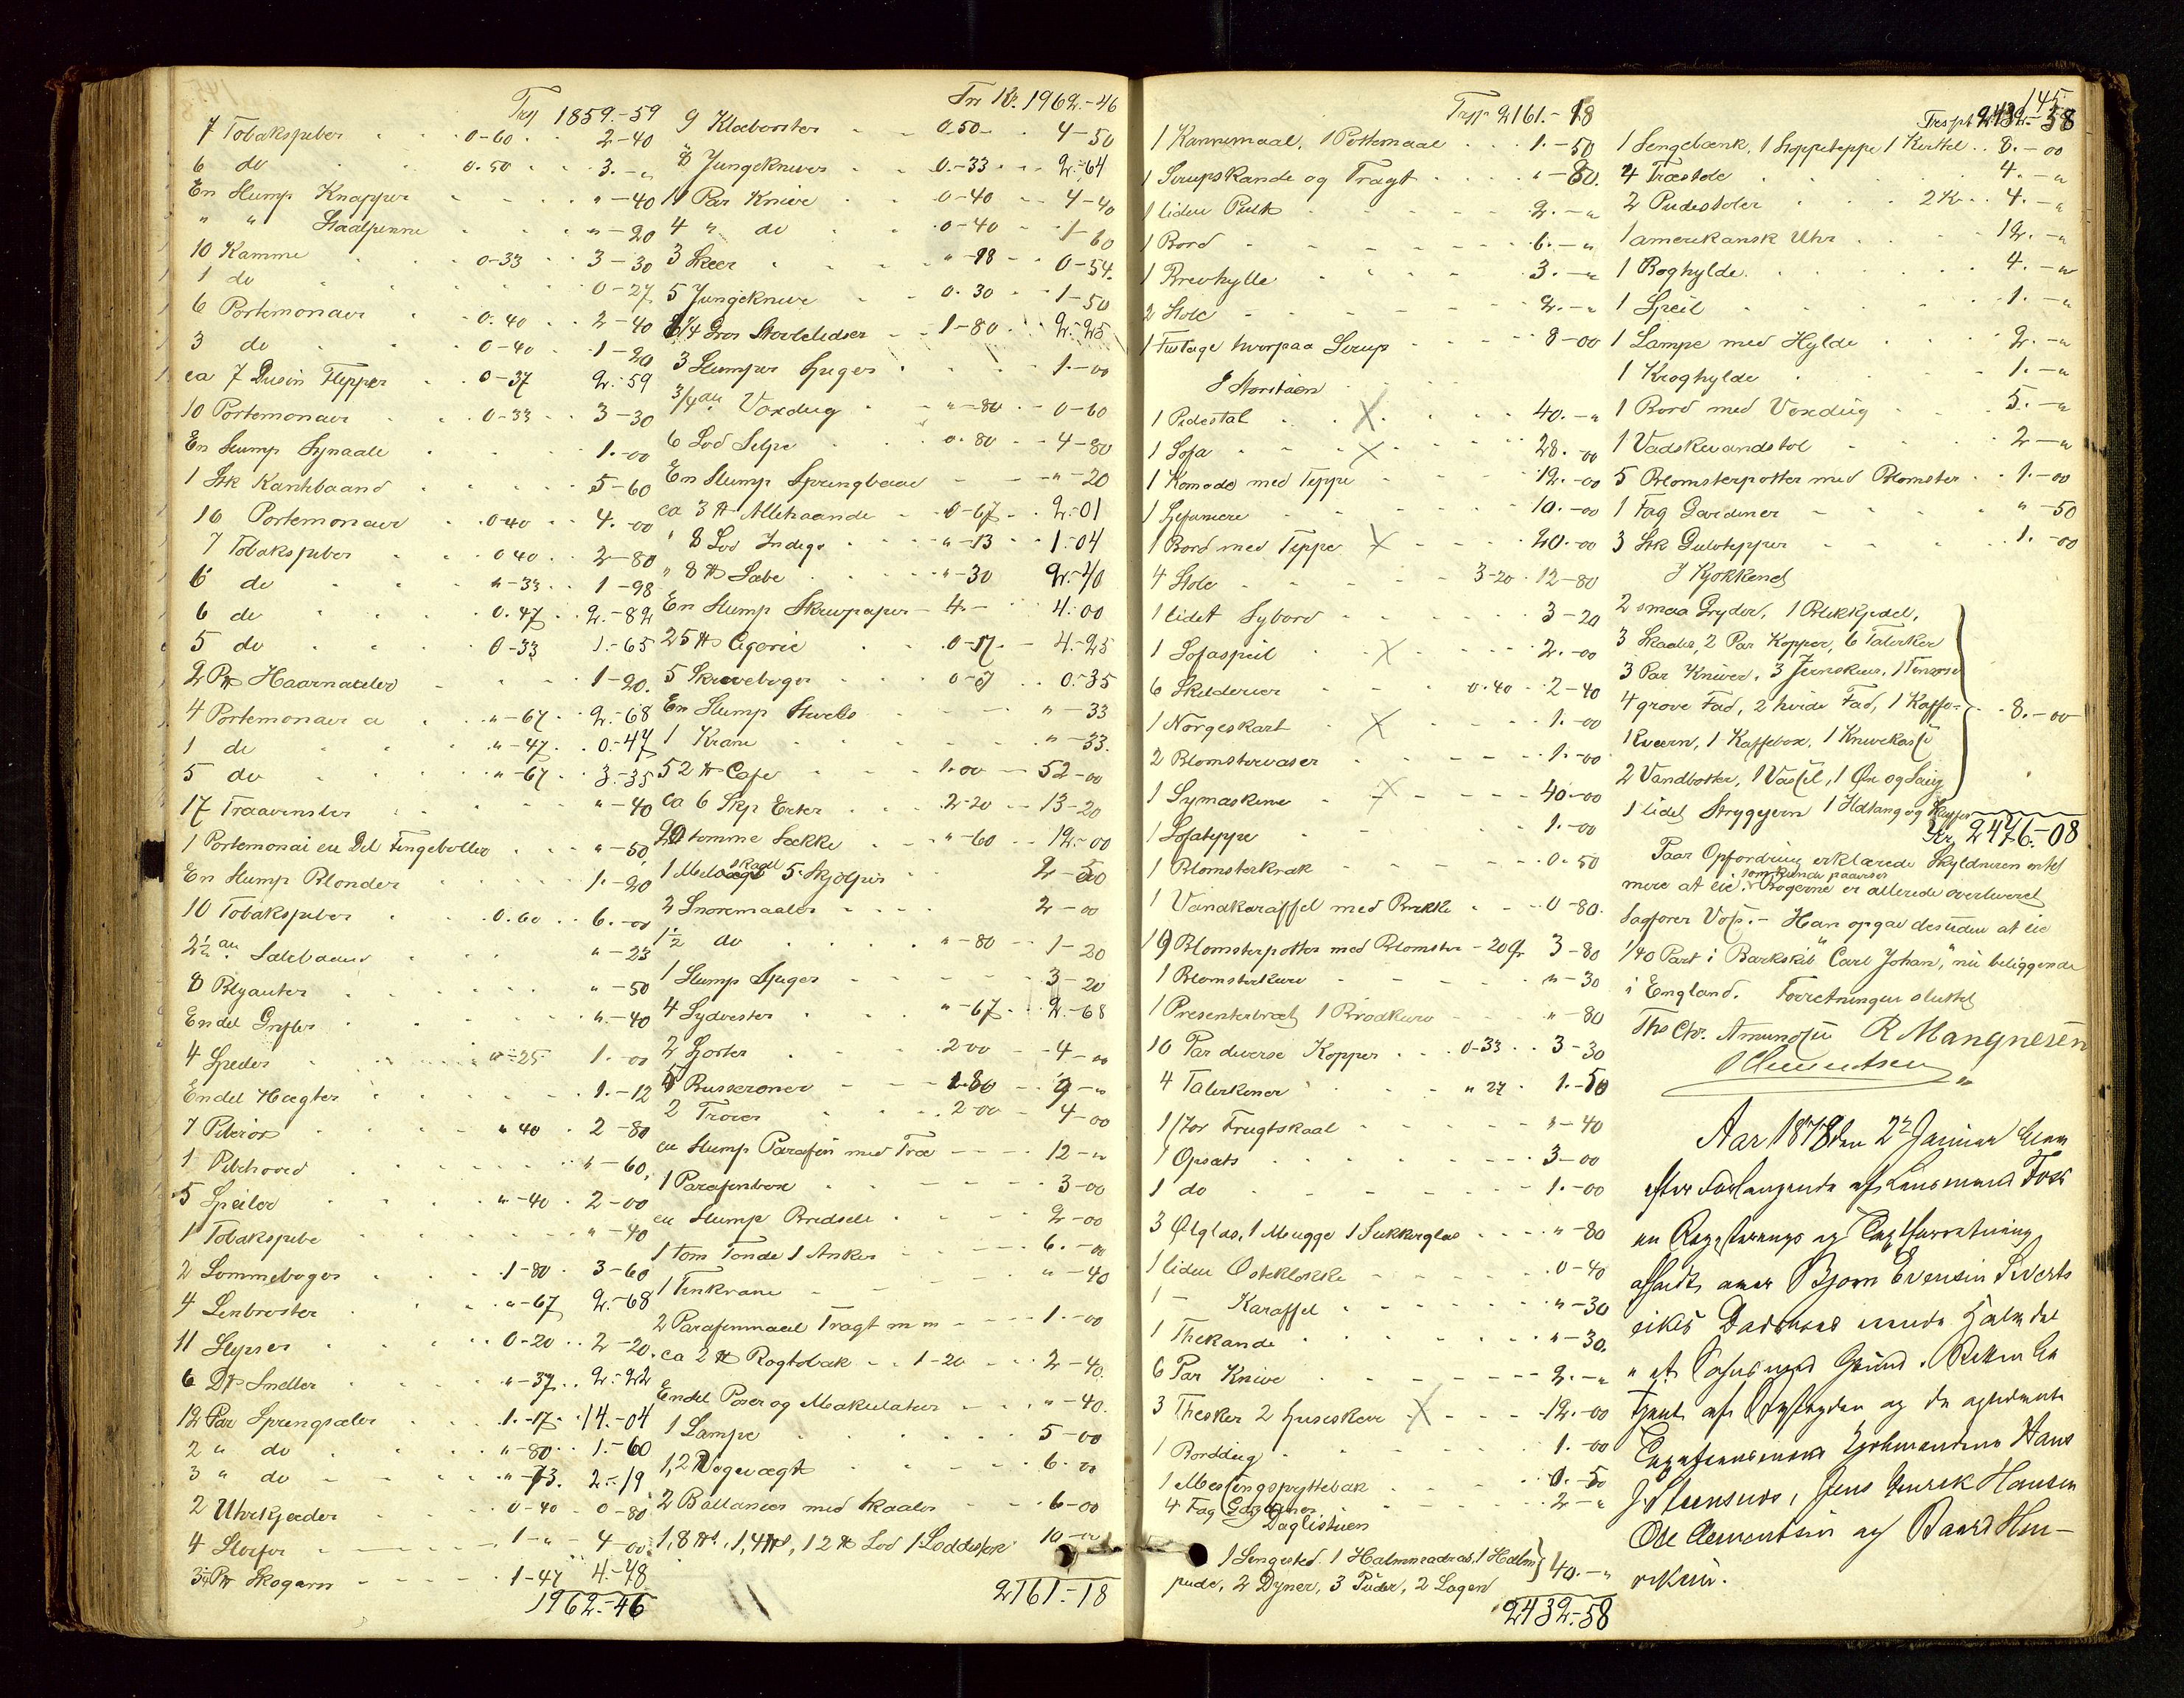 Trsp 1859.-59
7 Tobakspiber 0-60 2-40
6 do 0.50 3.-"
En Slump Knapper "-40
" " Staalpenne "-20
10 Kamme 0-33 3-30
1 do 0-27
6 Portemonaier 0.40 2-40
3 do 0-40 1-20
ca 7 Dusin Flepper 0-37 2.-59
10 Portemonaier 0-33 3-30
En Slump Synaale 1.-00
1 Stk Kantebaand 5-60
10 Portemonaier 0-40 4.-00
7 Tobakspiber 0 40 2-80
6 do "-33 1-98
6 do 0.47 2.-82
5 do 0-33 1.-65
2 Pk Haarnaaler 1-20.
4 Portemonaier a "-67 2.-68
1 do "-47 0.-47
5 do "-67 3.-35
17 "-40
1 Portemonai en Del Fingebøller "-50
En Slump Blonder 1.-20
10 Tobakspiber 0.60 6.-00
2½ al. "-23
8 Blyanter "-50
Endel Grifler "-40
4 "-25 1.-00
Endel Hægter 1.-12
7 Piberør "40 2-80
1 Pibehoved "-60
5 Speiler "-40 2-00
1 Tobakspibe "-40
2 Lommebøger 1-80 3-60
4 "-67 2.-68
11 Slipser 0-20 2-20.
6 Ds Sneller "-37 2.-22
12 Par 1.-17 14.-04
2 " do "-80 1.-60
3 " do "-73. 2.-19
2 Uhrkjæder 0-40 0-80
4 1-" 4-00
Skogarn 1-47 4.-48
1962.-46

Tr Kr. 1962.-46
9 Klæbørster 0.50 4-50
8 Jungeknive 0.-33 2.-64
11 Par Knive 0-40 4-40
4 " do 0-40 1-60
3 Skeer "-18 0-54.
5 Jungeknive 0.30 1-50
1¼ Gros Støvlelidser 1-80 2.-25
3 Slumper 1.-00
¾ al. Voxdug "-80 0-60
6 Lod Silke 0.80 4-80
En Slump "-20
ca 3 ℔ Allehaande 0-67 2.-01
" 8 Lod Indigo "-13 1.-04
" 8 ℔ Sæbe "-30 2.-40
En Slump Skrivpapir 4- 4.00
25 ℔ Cigorie 0-17 4.-25
5 Skrivebøger 0-7 0.-35
En Slump "-33
1 Krane "-33.
52 ℔ Cafe 1.00 52-00
ca 6 Skp Erter 2-20 13-20
20 tomme Sække "-60 12.-00
1 Melvægt Skaal 5 2-50
2 Snoremaaler 2-00
1½ do "-80 1-20
1 Slump 3-20
4 Sydvester "-67 2.-68
2 200 4-00
5 Busseroner 1.80 9-"
2 Trøier 2 00 4-00
en Slump Parafin med Træ 12-"
1 Parafinbox 3-00
en Slump 2-00
1 tom Tønde 1 Anker 6.-00
1 Tinkrane "-40
2 Parafinmaal Tragt m m 1.-00
ca 2 ℔ Røgtobak 1-20 2-40.
Endel Poser og Makulatur "-40.
1 Lampe 5-00
1,2 6.00
2 Ballancer med Skaaler 6-00
1,8 ℔, 1,4 ℔, 1 2 ℔ Lod 1 10-00
2161-18

Trsp. 2161.-18
1 Kannemaal, 1 Pottemaal 1.-50
1 Sirupskande og Tragt "-80.
1 liden Pult 2.-"
1 Bord 6.-"
1 Brevhylle 3.-"
2 Stole 2.-"
1 Fustage hvorpaa Sirup 8-00
I Storstuen
1 Pidestal X 40.-"
1 Sofa X 28.-00
1 Komode med Teppe 12.-00
1 10.-00
1 Bord med Teppe X 20.-00
4 Stole 3-20 12-80
1 lidet Sybord 3-20
1 Sofaspeil X 2.-00
6 Skilderier 0.40 2-40
1 Norgeskart X 1.-00
2 Blomstervaser 1.-00
1 Symaskine X 40.-00
1 Sofateppe 1.-00
1 Blomsterkrak 0.50
1 Vandkaraffel med Brikke 0-80.
19 Blomsterpotter med Blomster - 20 Ør 3-80
1 Blomsterkurv "-30
1 Presenterbræt 1 Brødkurv "-80
10 Par diverse Kopper 0-33 3-30
4 Talerkener "27 1.-50
1 Frugtskaal "-40
1 Opsats 3-00
1 do 1.-00
3 Ølglas, 1 Mugge 1 Sukkerglas "-80
1 liden Osteklokke 0-40
1 - Karaffel "-30
1 Thekande "-30.
6 Par Knive 2.-"
3 Theskeer 2 Spiseskeer X 12.-00
1 Borddug 1.-00
1 Messingspyttebak 0.-50
4 Fag Gardiner 2-"
Dagligstuen
1 Sengested. 1 Halmmadras, 1 Halm
pude, 2 Dyner, 3 Puder, 2 Lagen 40.-"
2432-58

145.
Trspt 2432.-58
1 Sengebænk, 1 Stoppeteppe 1 Kittel 8.-00
4 Træstole 4.-"
2 Pudestoler 2 Kr 4.-"
1 amerikansk Uhr 12.-"
1 Boghylde. 4.-"
1 Speil 1.-"
1 Lampe med Hylde 2.-"
1 Kroghylde 1.-"
1 Bord med Voxdug 5.-"
1 Vadskevandstol 2-"
5 Blomsterpotter med Blomster 1.-00
1 Fag Gardiner "-50
3 Stk Gulvtepper 1.-00
I Kjøkkenet
2 smaa Gryder, 1 Blikkjedel,
3 Skaaler, 2 Par Kopper, 6 Talerken
3 Par Knive, 3 Jernskeer, 1
4 grove Fad, 2 hvide Fad, 1 Kaffe- 8.-00
kværn, 1 Kaffebox, 1 Knivekasse
2 Vandbøtter, 1 Vassel, 1 Øxe og Saug
1 lidet Strygejern 1 Ildtang og
Kr 2476.-08
Paa Opfordring erklærede Skyldneren intet
mere at eie, som kunde paavises Bøgerne er allerede overleveret
Sagfører Voss.- Han opgav desuden at eie
1/40 Part i Barkskib "Carl Johan", nu beliggende
i England. Forretningen sluttet
Ths Chr. Amundsen R Mangnesen
O Clementsen

Aar 1878 den 2 Januar blev
efter Forlangende af Lensmand Foss
en Registrerings og Taxtforretning
afholdt over Bjørn Evensen Siverts
eikes Dødsbo
Retten be
tjent af og de opnævnte
Hans
J. Steensnes, Jens Henrik Hansen
Ole Clementsen og Baard Hen-
riksen.